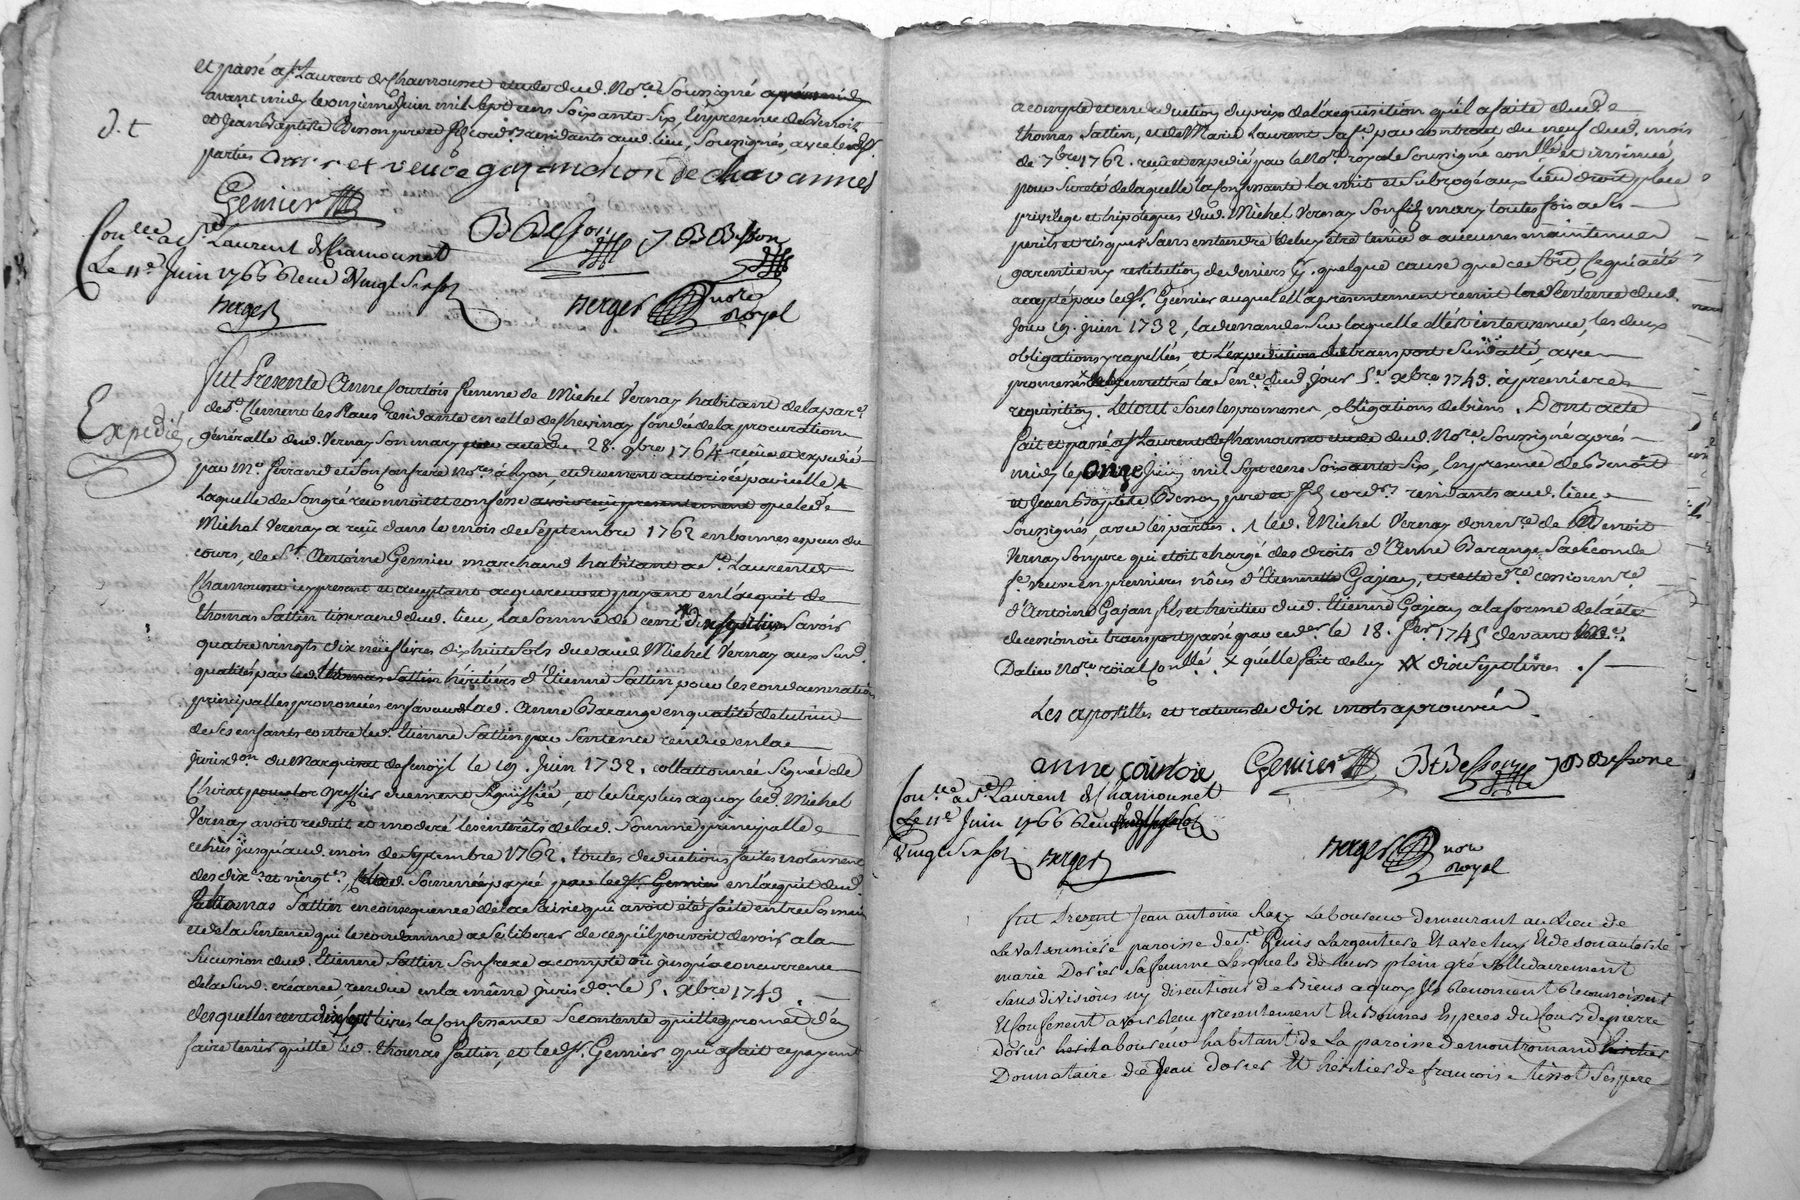 et passé a St Laurent de Chamousset etude dud. Nore. Soussigné apres midy
avant midy le onzieme Juin mil sept cens Soixante Six, En presence de Benoit
d. t
et Jean Baptiste Besson pere et fils cordrs. residants aud. lieu, Soussignés, avec lesd.
parties et veuve gayan chon de chavannes
Genier
Conllé a St Laurent de Chamousset
Le 11e Juin 1766 Receu Vingt Six sols
Berger
B Besson J B Besson
Berger nore Royal
Fut Presente Anne Courtois femme de Michel Vernay habitant de la par.
de St Clement les Places residante en celle de Chevinay fondée de la procuration
Expedié
généralle dud. Vernay Son mary par acte du 28. 9bre 1764 reçüe et expedié
par Me ferrand et Son confrere Nores. a Lyon, et duement autorisée par icelle
Laquelle de Son gré reconnoit et confesse avoir reçu presentement que led.
Michel Vernay a reçü dans le mois de Septembre 1762 en bonnes especes du
cours, de Sr. Antoine Genier marchand habitant a St. Laurent de
Chamousset icy present et acceptant acquereur et payant en l'acquit de
thomas Sattin tisserand dud. lieu, La somme de cent dix sept livres Savoir
quatre vingts dix neuf livres dix huit sols due aud Michel Vernay aux Susd.
qualités par led. thomas Sattin héritiers d'Etienne Sattin pour les condamnations
principalles prononcées en faveur de lad. Anne Barange en qualité de tutrice
de Ses enfants contre led. Etienne Sattin par Sentence rendue en la
jurisdon. du Marquisat de le 19. Juin 1732. collationnée Signée de
Chirat pour lors greffier duement Signiffiée, et le Surplus a quoy led. Michel
Vernay avoit reduit et moderé les interêts de lad. Somme principalle
echus jusqu'aud. mois de Septembre 1762. toutes deductions faites notament
des dixe. et vingte., lad. Somme payée par led. Sr. Genier en l'acquit dud.
thomas Sattin en consequence de la Saisie qui avoit été faite entre Ses mains
et de la Sentence qui le condamne a Se liberer de ce qu'il pouvoit devoir a la
Sucession dud. Etienne Sattin Son frere a compte ou jusqu'a concurrence
de la Susd. créance rendue en la même jurisdon. le 5. Xbre 1743.
desquelles cent dix sept livres la Confessante Se contente quitte et promet d'en
faire tenir quitte led. thomas Sattin, et led. Sr. Genier qui a fait ce payement
a compte et en deduction du prix de l'acquisition qu'il a faite dud.
thomas Sattin, et de Marie Laurent Sa fe. par contract du neuf dud. mois
de 7bre 1762. reçu et expedié par le Nore. royal Soussigné conllé et insinué,
pour Sureté de laquelle la Confessante la mit et Subrogé aux lieu droit, place
privilege et hipoteques dud. Michel Vernay Son dit mary toutes fois a Ses
perils et risques Sans entendre de luy être tenüe a aucunes maintenue
garentie ny restitution de deniers pr. quelque cause que ce Soit, Ce qui a été
accepté par led. Sr. Genier auquel elle a presentement remit la Sentence dud.
Jour 19. juin 1732, la demande Sur laquelle elle est intervenüe, les deux
obligations y rapellées et l'expedition du transport Sus datté, avec
promesse de luy remettre la Sence. dud. jour 5e. Xbre 1743. à premiere
requisition. Le tout Sous les promesses, obligations de biens. Dont acte
fait et passé a St Laurent de Chamousset etude dud. Nore. Soussigné après
midy le onze Juin mil sept cens soixante Six, En presence de Benoit
et Jean Baptiste Besson pere et fils cordrs. residants aud. lieu
Soussignés, avec les parties. 1 led. Michel Vernay donnre. de Benoit
Vernay Son pere qui etoit chargé des droits d'Anne Barange Sa Seconde
fe. veuve en premieres nôces d'Etiennette Gajan, et cette dre. cessionnre.
d'Antoine Gajan fils et heritier dud. Etienne Gajan a la forme de l'acte
de cession ou transport passé par ced. le 18. fer. 1745 devant Me.
Dalieu Nore. roial Conllé. x qu'elle fait de luy xx dix sept livres ./.
Les apostilles et ratures de dix mots aprouvées
anne courtois Genier Bt Besson J B Bessone
Conllé a St Laurent de Chamousset
Le 11e Juin 1766 Receu
Vingt Six sols Berger
Berger nore Royal
fut Present Jean antoine Laboureur demeurant au Lieu de
La valsonniere paroisse de St. Genis Largentiere Et avec luy Et de son autorité
marie Dorier Sa femme Lesquels de Leurs plein gré Sollidairement
Sans divisions ny discutions de Biens a quoy ils Renoncent Reconnoissent
Et Confessent avoir Receu presentement En Bonnes Especes du Cours de pierre
Dorier Laboureur habitant de La paroisse de montromand heritier
Donnataire de Jean dorier Et heritier de francoise Son pere